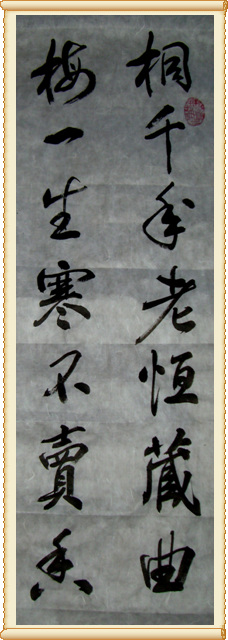 桐千年老恒藏曲
梅一生寒不賣香